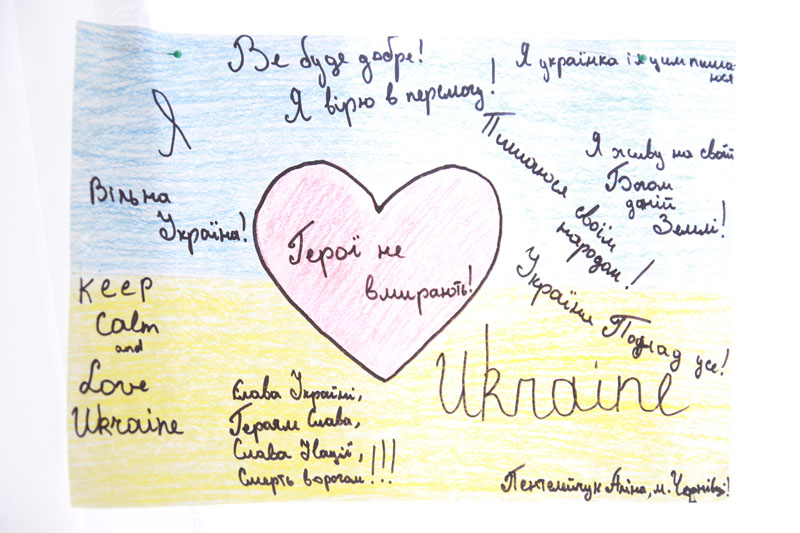 Все буде добре!
Я українка і цим пиша-
юся
Я вірю в перемогу!
Я
Пишаюся своїм
народом!
Я живу на своїй
Богом
даній
Землі!
Вільна
Україна!
Герої не
вмирають!
Україна Понад усе!
Keep
Calm
and
Love
Ukraine
Ukraine
Слава Україні,
Героям Слава,
Слава Нації,
Смерть ворогам!!!
Аліна, м. Чернівці!